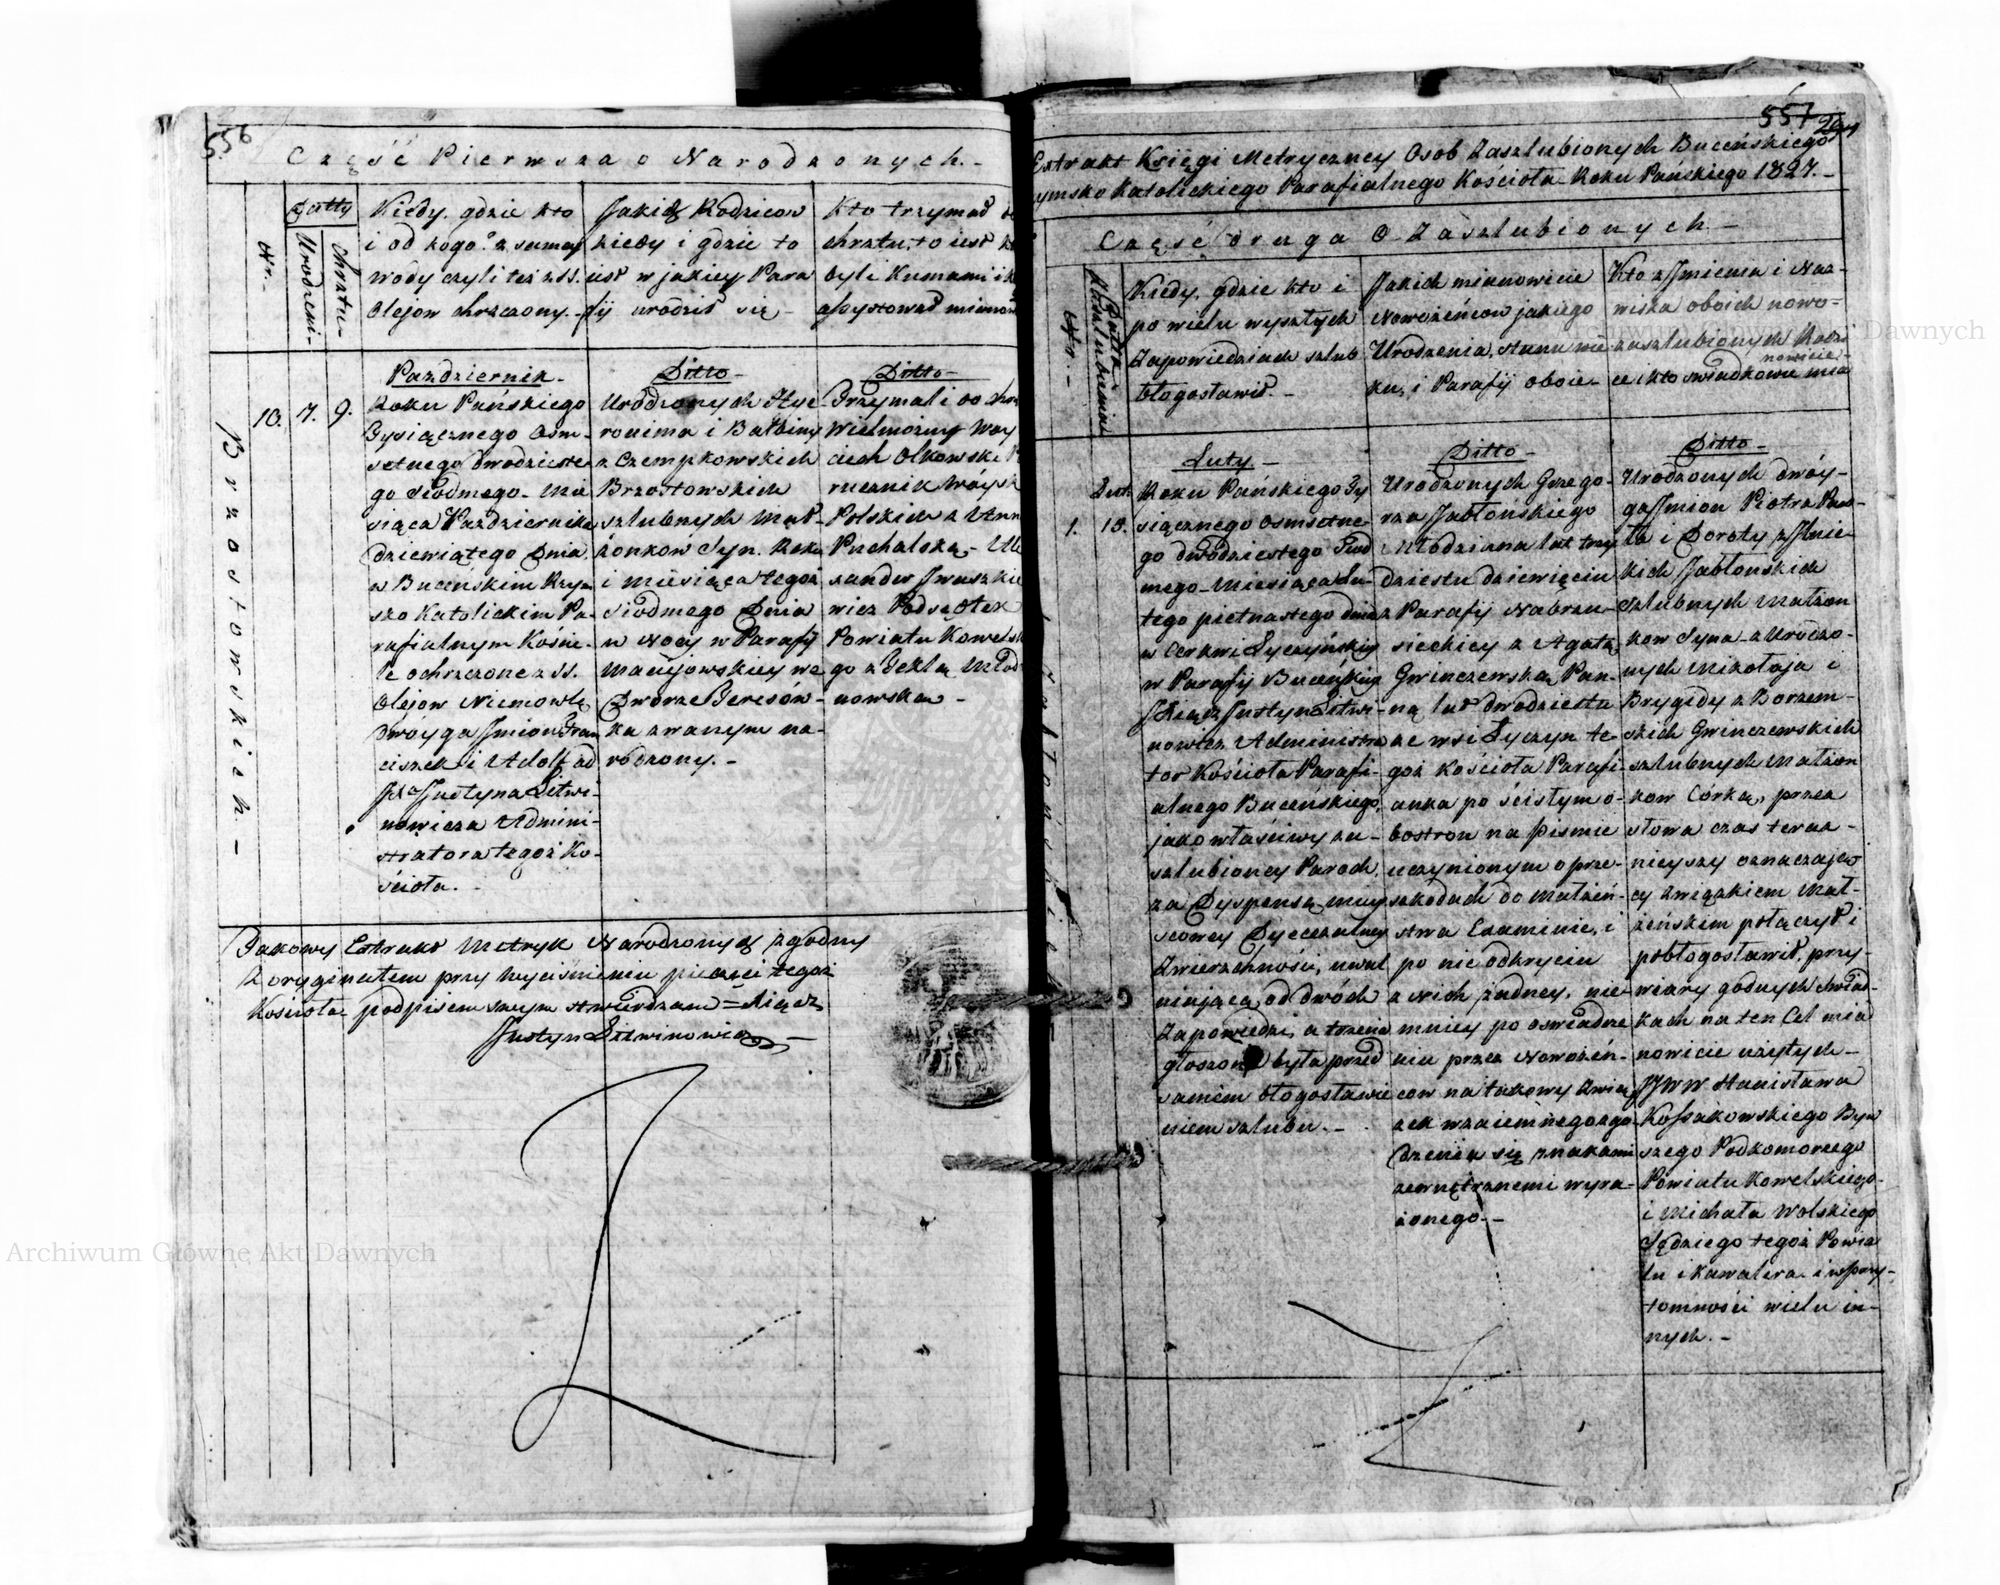 556
Część Pierwsza o Narodzonych.-
Nr.-
Datty
Urodzeni-
Chrztu-
Kiedy, gdzie kto
i od kogo? z samey
wody czyli też z SS.
Olejow chrzczony.-
Jakich Rodzicow
kiedy i gdzie to
iest w jakiey Para
fij urodził się-
Kto trzymał do
chrztu, to iest
byli Kumami i
assystował
Brzostowskich-
10. 7. 9.
Październik.-
Roku Pańskiego
Tysiącznego Ośm-
setnego dwódzieste-
go siódmego. Mie
siąca Października
dziewiątego Dnia
w Buceńskim Rzym
sko Katolickim Pa-
rafialnym Koście-
le ochrzczone z SS.
Olejow Niemowlę
dwóyga Jmion Fran
ciszek i Adolf od
JXa Justyna Litwi-
nowicza Admini-
stratora tegoż Ko-
ścioła.-
Ditto-
Urodzonych Hye-
ronima i Balbiny
z Czempkowskich
Brzostowskich
szlubnych Mał-
żonków Syn. Roku
i miesiąca tegoż
Siódmego Dnia
w Nocy w Parafij
Maciejowskiey we
Dworze Beresów-
ka zwanym na-
rodzony.-
Ditto-
Trzymali do
Wielmożny Woy
ciech Olkowski
rucznik Wóysk
Polskich z
Puchalską,-
xander Jwaszkie
wicz Podsędtek
Powiatu Kowelsk
go z Teklą Młod
nowską-
Takowy Extrakt Metryk Narodzonych zgodny
z oryginałem przy wyciśnieniu pieczęci tegoż
Kościoła podpisem swym stwierdzam = Xiądz
Justyn Litwinowicz-
557
Extrakt Księgi Metryczney Osob Zaszlubionych Buceńskiego
ymsko Katolickiego Parafialnego Kościoła Roku Pańskiego 1827.-
Część druga O Zaszlubionych-
Nr.-
Datta
Zaszlubieni
Kiedy, gdzie kto i
po wielu wyszłych
Zapowiedziach szlub
błogosławił.-
Jakich mianowicie
Nowożeńcow jakiego
Urodzenia, stanu wie-
ku, i Parafij oboie-
Kto z Jmienia i Naz-
wiska oboich nowo-
zaszlubionych Rodzi
ce i kto swiadkowie mia
nowicie-
1. 15.
Luty-
Roku Pańskiego Ty
siącznego Osmsetne-
go dwódziestego Siod
mego Miesiąca Lu-
tego pietnastego dnia
w Cerkwi Łyczyńskiey
w Parafij Buceńskiey
JXiądz Justyn Litwi-
nowicz Administra
tor Kościoła Parafi-
alnego Buceńskiego,
jako właściwy za-
szlubioney Paroch,
za Dyspensą miey
scowey Dyecezalney
Zwierzchności, uwal
niającą od dwóch
Zapowiedzi, a trzecia
głoszona była przed
samem błogosławie
niem szlubu.-
Ditto-
Urodzonych Grzego-
rza Jabłońskiego
Młodziana lat trzy
dziestu dziewięciu
z Parafij Nabrzu-
sieckiey z Agatą
Gwinczewską Pan-
ną lat dwódziestu
ze wsi Łyczyn te-
goż Kościoła Parafi-
anka po ścisłym o-
bostron na piśmie
uczynionym o prze-
szkodach do Małżeń-
stwa Examinie, i
po nie odkryciu
z Nich żadney, nie-
mniey po oswiadcze
niu przez Nowożeń-
cow na takowy Zwią
zek wzaiemnego zgo-
dzenia się znakami
zewnętrznemi wyra-
żonego.-
Ditto-
Urodzonych dwóy-
ga Jmion Piotra Paw-
ła i Doroty z
kich Jabłońskich
Szlubnych Małżon
kow Syna z Urodzo-
nych Mikołaja i
Brygidy z Borzem-
skich Gwinczewskich
szlubnych Małżon
kow Córką, przez
słowa czas teraz-
nieyszy oznaczają-
cy związkiem Mał-
żeńskim połączył i
pobłogosławił, przy-
wiary godnych Swiad-
kach na ten Cel mia
nowicie użytych-
JWW Stanisława
Kossakowskiego Byw
szego Podkomorzego
Powiatu Kowelskiego-
i Michała Wolskiego
Sędziego tegoż Powia
tu i Kawalera i w przy-
tomności wielu in-
nych.-
Archiwum Główne Akt Dawnych
Archiwum Główne Akt Dawnych